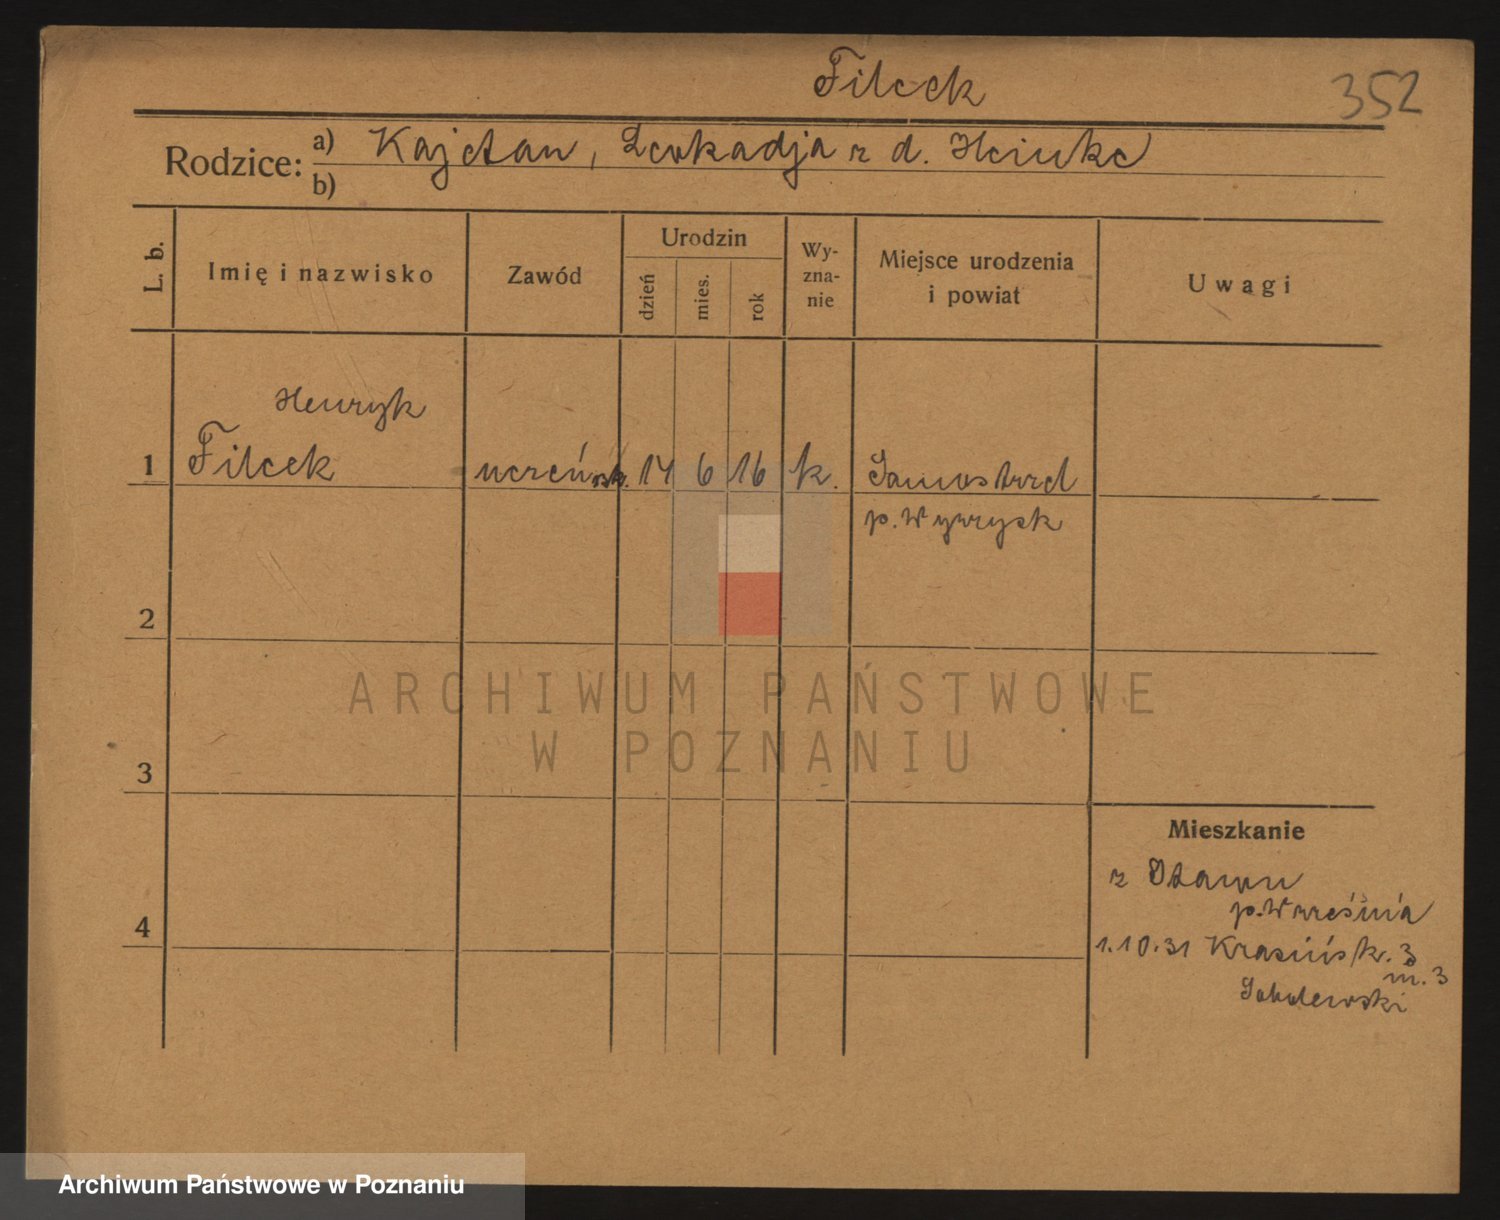 Filcek
352
Rodzice:
a) Kajetan, Leokadja z d. Heinke
b)
L. b.
Imię i nazwisko
Zawód
Urodzin
dzień
mies.
rok
Wy-
zna-
nie
Miejsce urodzenia
i powiat
Uwagi
Henryk
1 Filcek uczeń szk. 14 6 16 k. Samostrzel
p. Wyrzysk
2
3
4
Mieszkanie
z
p. Września
1.10.31 Krasińsk. 3
m. 3
Sobolewski
ARCHIWUM PAŃSTWOWE
W POZNANIU
Archiwum Państwowe w Poznaniu